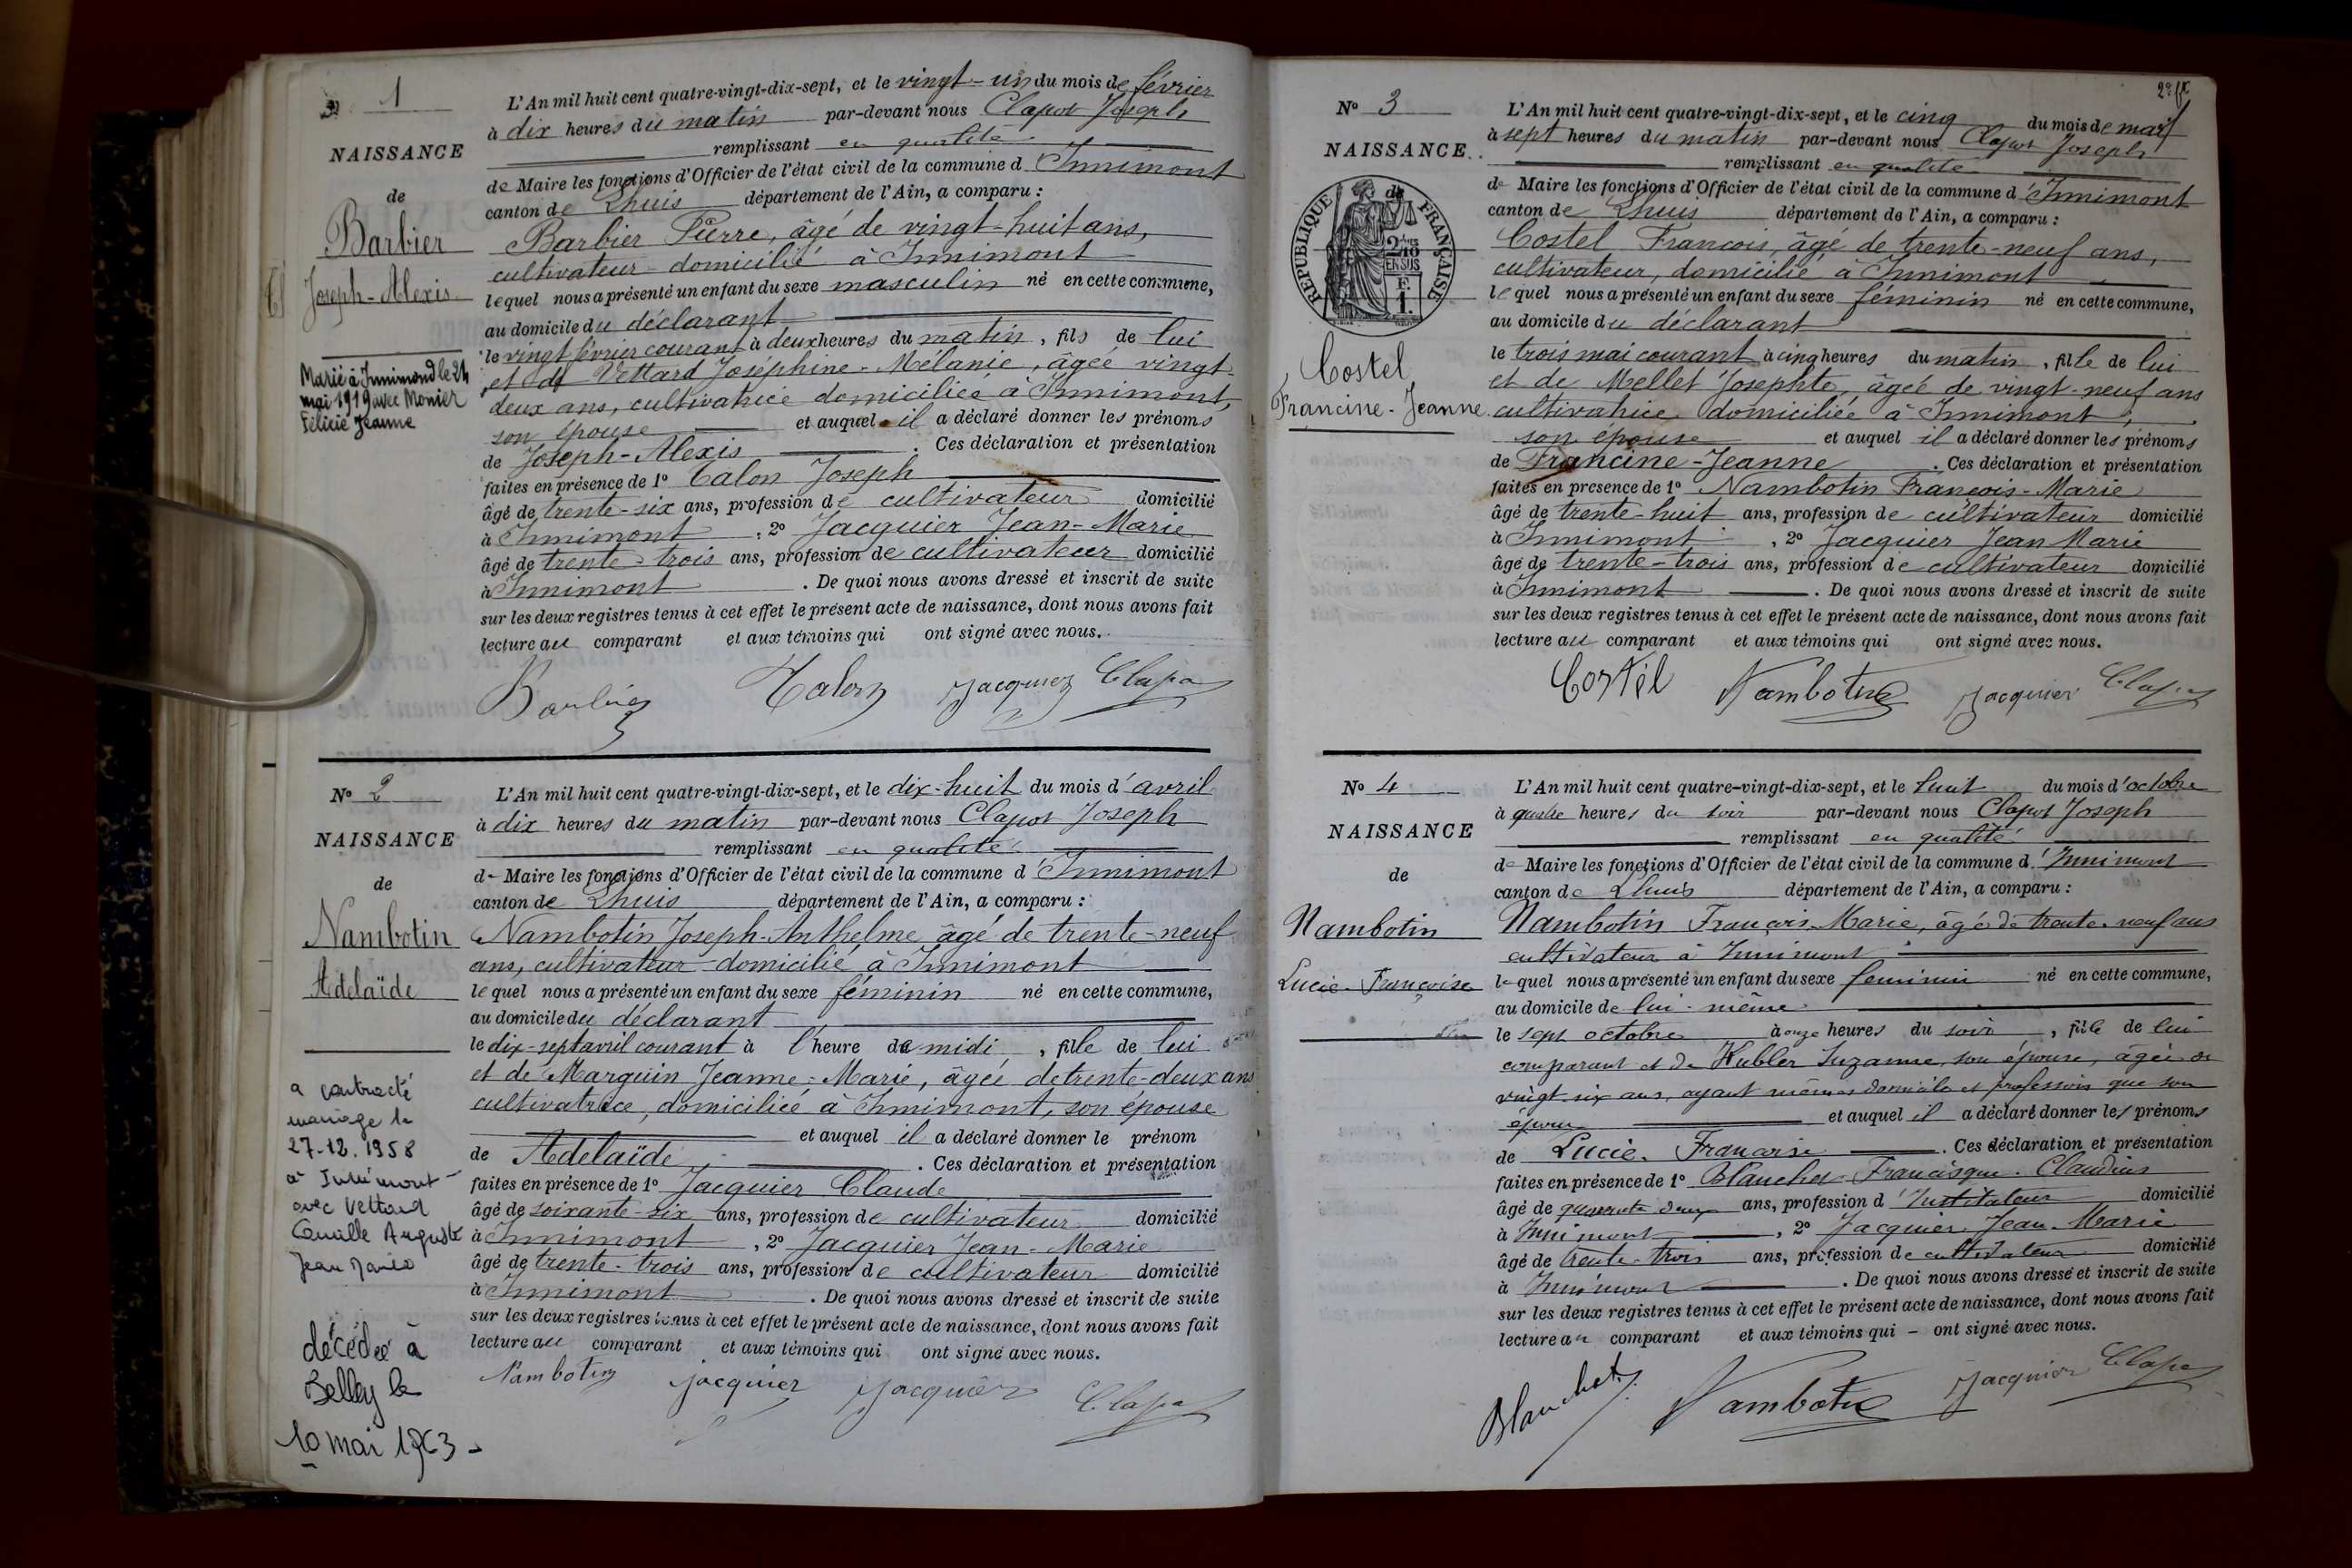 N° 1
NAISSANCE
de
Barbier
Joseph-Alexis
Marié à Innimond le 24
mai 1919 avec Monier
Félicie Jeanne
L'An mil huit cent quatre-vingt-dix-sept, et le vingt-un du mois de février
à dix heures du matin par-devant nous Clapot Joseph
remplissant en qualité
de Maire les fonctions d'Officier de l'état civil de la commune d'Innimont
canton de Lhuis département de l'Ain, a comparu :
Barbier Pierre, âgé de vingt-huit ans,
cultivateur domicilié à Innimont
lequel nous a présenté un enfant du sexe masculin né en cette commune,
au domicile du déclarant
le vingt février courant à deux heures du matin, fils de lui
et de Vettard Joséphine-Mélanie, âgée vingt-
deux ans, cultivatrice domiciliée à Innimont,
son épouse et auquel il a déclaré donner les prénoms
de Joseph-Alexis. Ces déclaration et présentation
faites en présence de 1° Talon Joseph
âgé de trente-six ans, profession de cultivateur domicilié
à Innimont, 2° Jacquier Jean-Marie
âgé de trente-trois ans, profession de cultivateur domicilié
à Innimont. De quoi nous avons dressé et inscrit de suite
sur les deux registres tenus à cet effet le présent acte de naissance, dont nous avons fait
lecture au comparant et aux témoins qui ont signé avec nous.
Barbier Talon Jacquier Clapot
N° 2
NAISSANCE
de
Nambotin
Adelaïde
a contracté
mariage le
27-12.1958
à Innimont
avec Vettard
Camille Auguste
Jean Marie
décédée à
Belley le
10 mai 1963
L'An mil huit cent quatre-vingt-dix-sept, et le dix-huit du mois d'avril
à dix heures du matin par-devant nous Clapot Joseph
remplissant en qualité
de Maire les fonctions d'Officier de l'état civil de la commune d'Innimont
canton de Lhuis département de l'Ain, a comparu :
Nambotin Joseph-Anthelme âgé de trente-neuf
ans, cultivateur domicilié à Innimont
lequel nous a présenté un enfant du sexe féminin né en cette commune,
au domicile du déclarant
le dix-sept avril courant à l'heure de midi, fille de lui
et de Marquin Jeanne-Marie, âgée de trente-deux ans
cultivatrice, domiciliée à Innimont, son épouse
et auquel il a déclaré donner le prénom
de Adelaïde. Ces déclaration et présentation
faites en présence de 1° Jacquier Claude
âgé de soixante-six ans, profession de cultivateur domicilié
à Innimont, 2° Jacquier Jean-Marie
âgé de trente-trois ans, profession de cultivateur domicilié
à Innimont. De quoi nous avons dressé et inscrit de suite
sur les deux registres tenus à cet effet le présent acte de naissance, dont nous avons fait
lecture au comparant et aux témoins qui ont signé avec nous.
Nambotin Jacquier Jacquier Clapot
N° 3
NAISSANCE
de
RÉPUBLIQUE FRANÇAISE
Costel
Francine-Jeanne
L'An mil huit cent quatre-vingt-dix-sept, et le cinq du mois de mai
à sept heures du matin par-devant nous Clapot Joseph
remplissant en qualité
de Maire les fonctions d'Officier de l'état civil de la commune d'Innimont
canton de Lhuis département de l'Ain, a comparu :
Costel François, âgé de trente-neuf ans,
cultivateur, domicilié à Innimont
lequel nous a présenté un enfant du sexe féminin né en cette commune,
au domicile du déclarant
le trois mai courant à cinq heures du matin, fille de lui
et de Mellet Josephte, âgée de vingt-neuf ans
cultivatrice domiciliée à Innimont,
son épouse et auquel il a déclaré donner les prénoms
de Francine-Jeanne. Ces déclaration et présentation
faites en presence de 1° Nambotin François-Marie
âgé de trente-huit ans, profession de cultivateur domicilié
à Innimont, 2° Jacquier Jean Marie
âgé de trente-trois ans, profession de cultivateur domicilié
à Innimont. De quoi nous avons dressé et inscrit de suite
sur les deux registres tenus à cet effet le présent acte de naissance, dont nous avons fait
lecture au comparant et aux témoins qui ont signé avec nous.
Costel Nambotin Jacquier Clapot
N° 4
NAISSANCE
de
Nambotin
Lucie-Françoise
L'An mil huit cent quatre-vingt-dix-sept, et le huit du mois d'octobre
à quatre heures du soir par-devant nous Clapot Joseph
remplissant en qualité
de Maire les fonctions d'Officier de l'état civil de la commune d'Innimont
canton de Lhuis département de l'Ain, a comparu :
Nambotin François-Marie, âgé de trente-neuf ans
cultivateur à Innimont
lequel nous a présenté un enfant du sexe feminin né en cette commune,
au domicile de lui-même
le sept octobre à onze heures du soir, fille de lui
comparant et de Kubler Suzanne, son épouse, âgée de
vingt-six ans, ayant mêmes domicile et profession que son
époux et auquel il a déclaré donner les prénoms
de Lucie-Françoise. Ces déclaration et présentation
faites en présence de 1° Blanchet Francisque-Claudius
âgé de quarante deux ans, profession d'Instituteur domicilié
à Innimont, 2° Jacquier Jean-Marie
âgé de trente-trois ans, profession de cultivateur domicilié
à Innimont. De quoi nous avons dressé et inscrit de suite
sur les deux registres tenus à cet effet le présent acte de naissance, dont nous avons fait
lecture au comparant et aux témoins qui – ont signé avec nous.
Blanchet Nambotin Jacquier Clapot